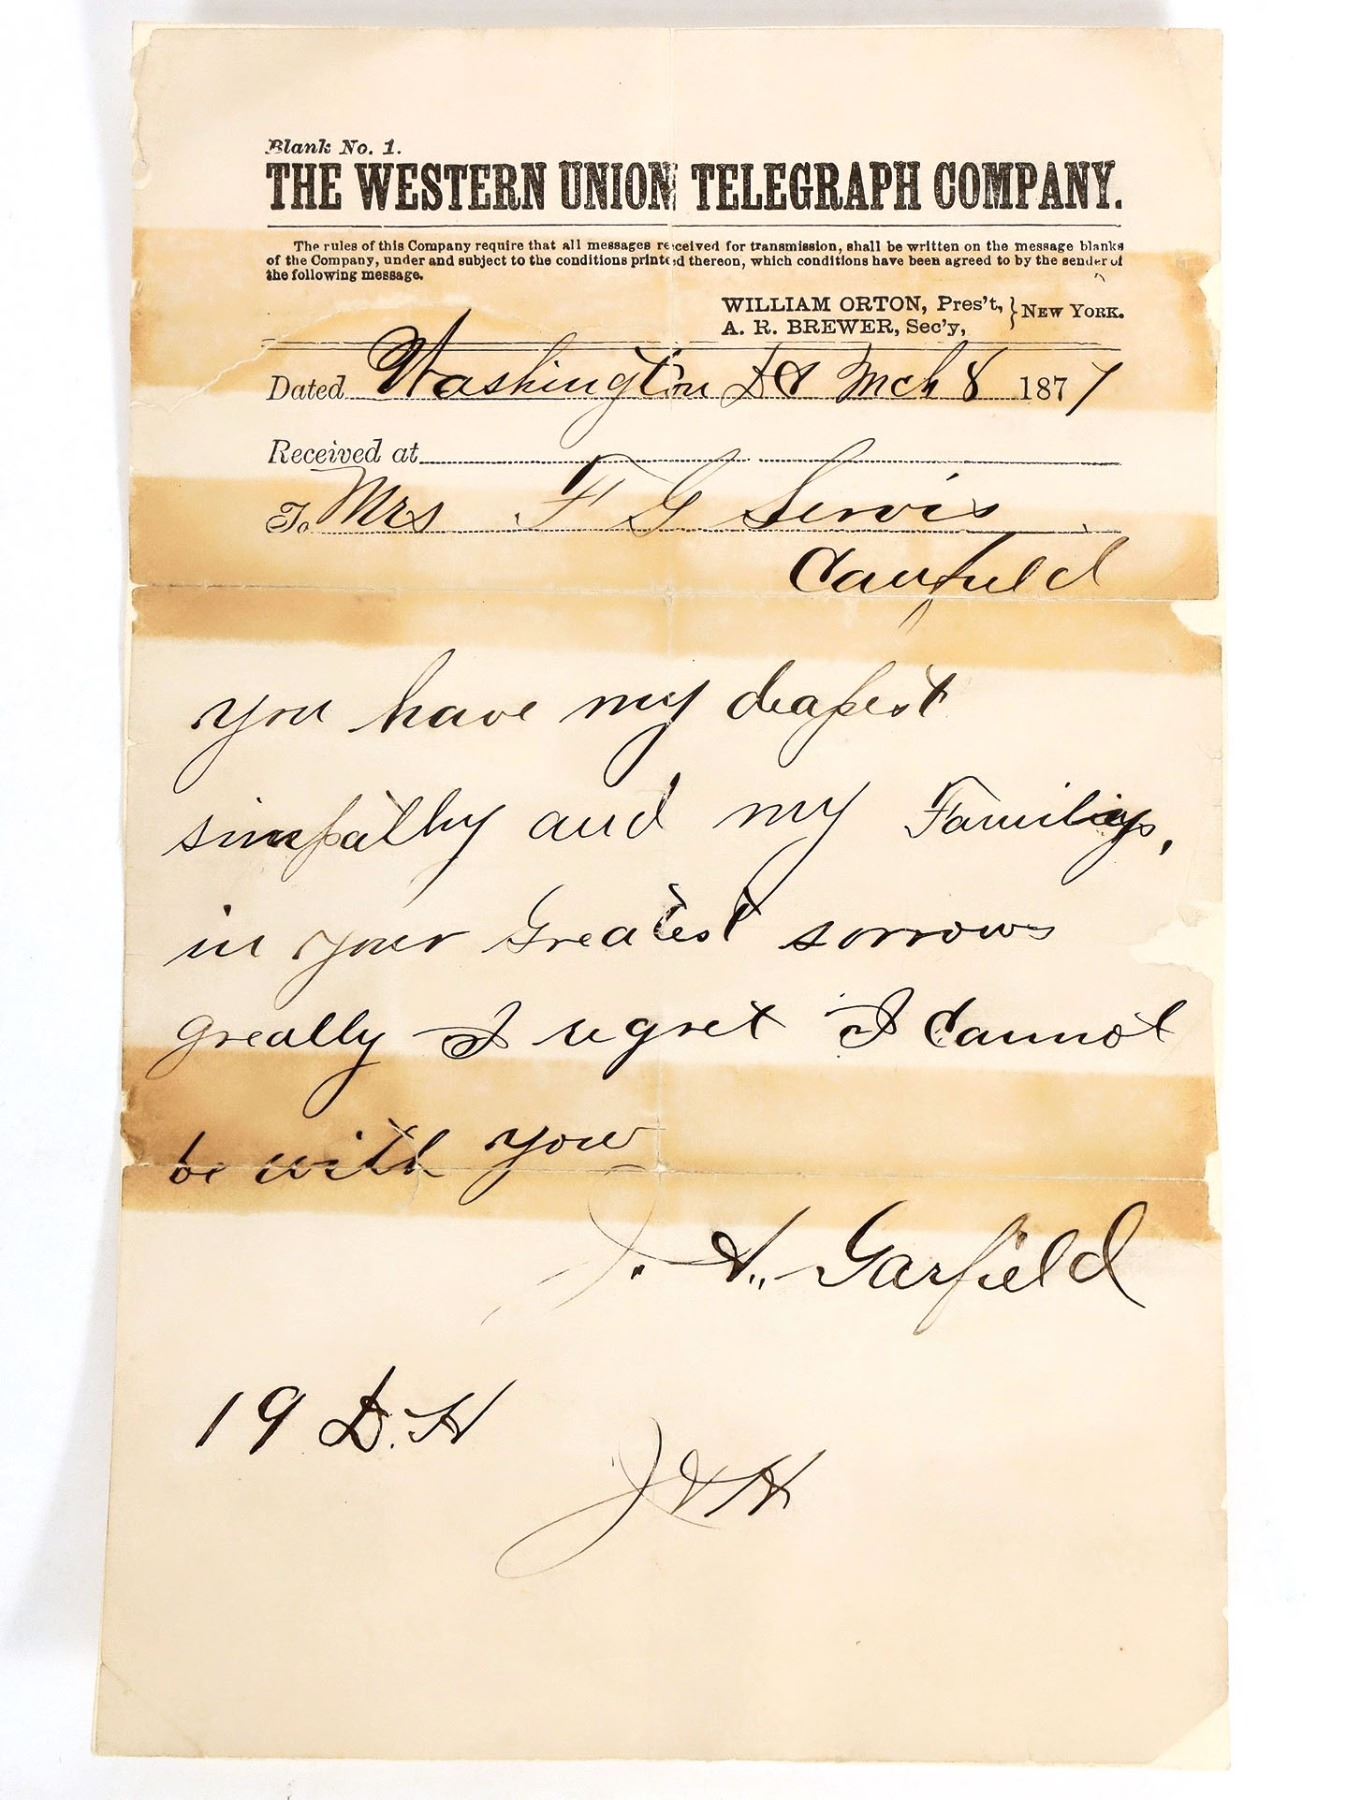 Blank No. 1.
THE WESTERN UNION TELEGRAPH COMPANY.
The rules of this Company require that all messages received for transmission, shall be written on the message blanks
of the Company, under and subject to the conditions printed thereon, which conditions have been agreed to by the sender of
the following message.
WILLIAM ORTON, Pres't, } NEW YORK.
A. R. BREWER, Sec'y,
Dated Washington DC Mch 8 1877
Received at
To Mrs F G Servis
Canfield
you have my deapest
simpathy and my Familys,
in your Greatest sorrows
greatly I regret I cannot
be with you
J. A. Garfield
19 D.H